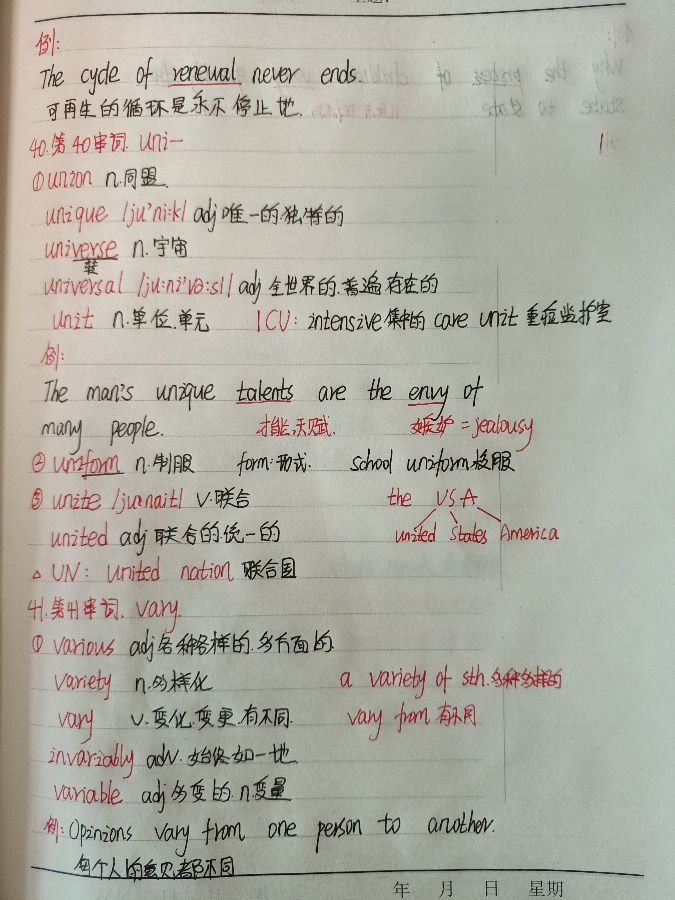 例:
The cycle of renewal never ends.
可再生的循环是永不停止地.
40.第40串词. uni一
①union n.同盟.
unique /ju'ni:k/ adj唯一的.独特的
universe n.宇宙
转
universal /ju:ni'və:sl/ adj 全世界的.普遍存在的
unit n.单位.单元 ICU: intensive集中的 care unit 重症监护室
例:
The man's unique talents are the envy of
many people. 才能,天赋. 嫉妒=jealousy
②uniform n.制服 form:形式. school uniform校服
③ unite /ju:nait/ v.联合 the USA
united adj 联合的.统一的 united States America
△ UN: united nation 联合国
41.第41串词. vary.
① various adj各种各样的.多方面的.
variety n.多样化 a variety of sth.多种多样的
vary v.变化.变更.有不同. vary from 有不同
invariably adv.始终如一地.
variable adj多变的.n变量
例:Opinions vary from one person to another.
每个人的意见都不同
年 月 日 星期